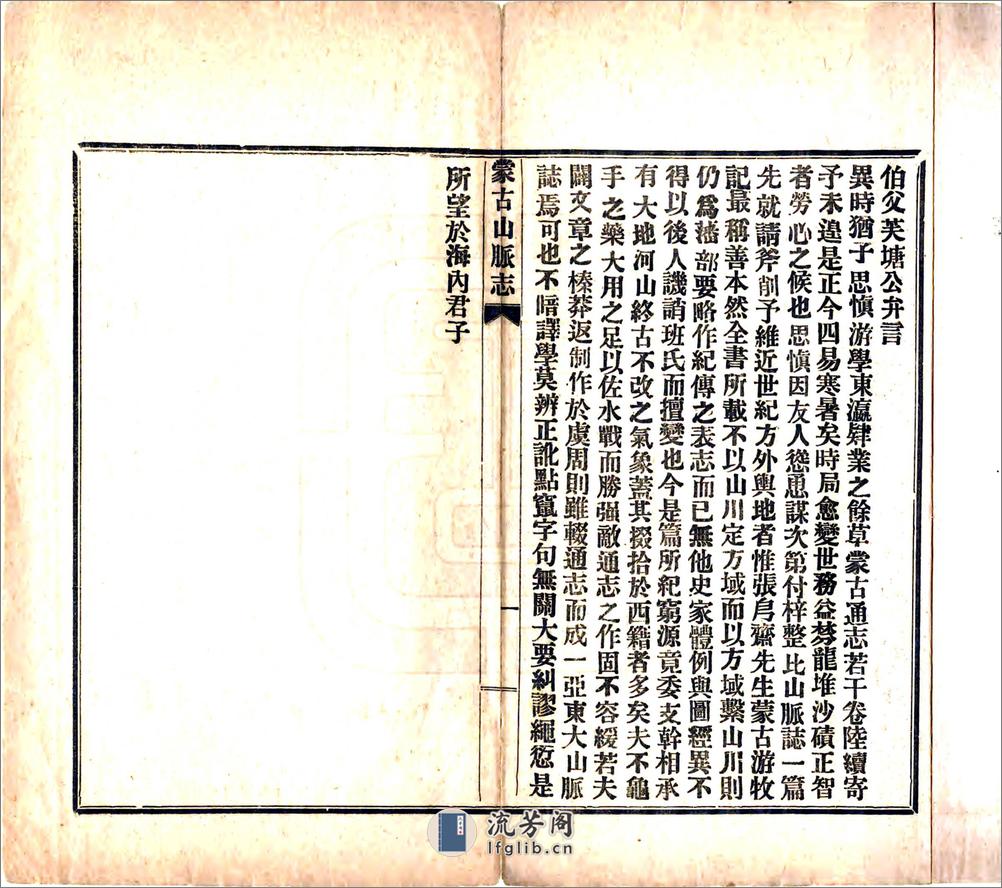 伯父芙塘公弁言
異時猶子思慎游學東瀛肄業之餘草蒙古通志若干卷陸續寄
予未遑是正今四易寒暑矣時局愈變世務益棼龍堆沙磧正智
者勞心之候也思慎因友人慫恿謀次第付梓整比山脈誌一篇
先就請斧削予維近世紀方外輿地者惟張𠂤齋先生蒙古游牧
記最稱善本然全書所載不以山川定方域而以方域繫山川則
仍爲藩部要略作紀傳之表志而已無他史家體例與圖經異不
得以後人譏誚班氏而擅變也今是篇所紀窮源竟委支幹相承
有大地河山終古不改之氣象蓋其掇拾於西籍者多矣夫不龜
手之藥大用之足以佐水戰而勝强敵通志之作固不容緩若夫
闢文章之榛莽返制作於虞周則雖輟通志而成一亞東大山脈
誌焉可也不暗譯學莫辨正訛點竄字句無關大要糾謬繩愆是
蒙古山脈志
一
所望於海內君子
流芳阁
lfglib.cn